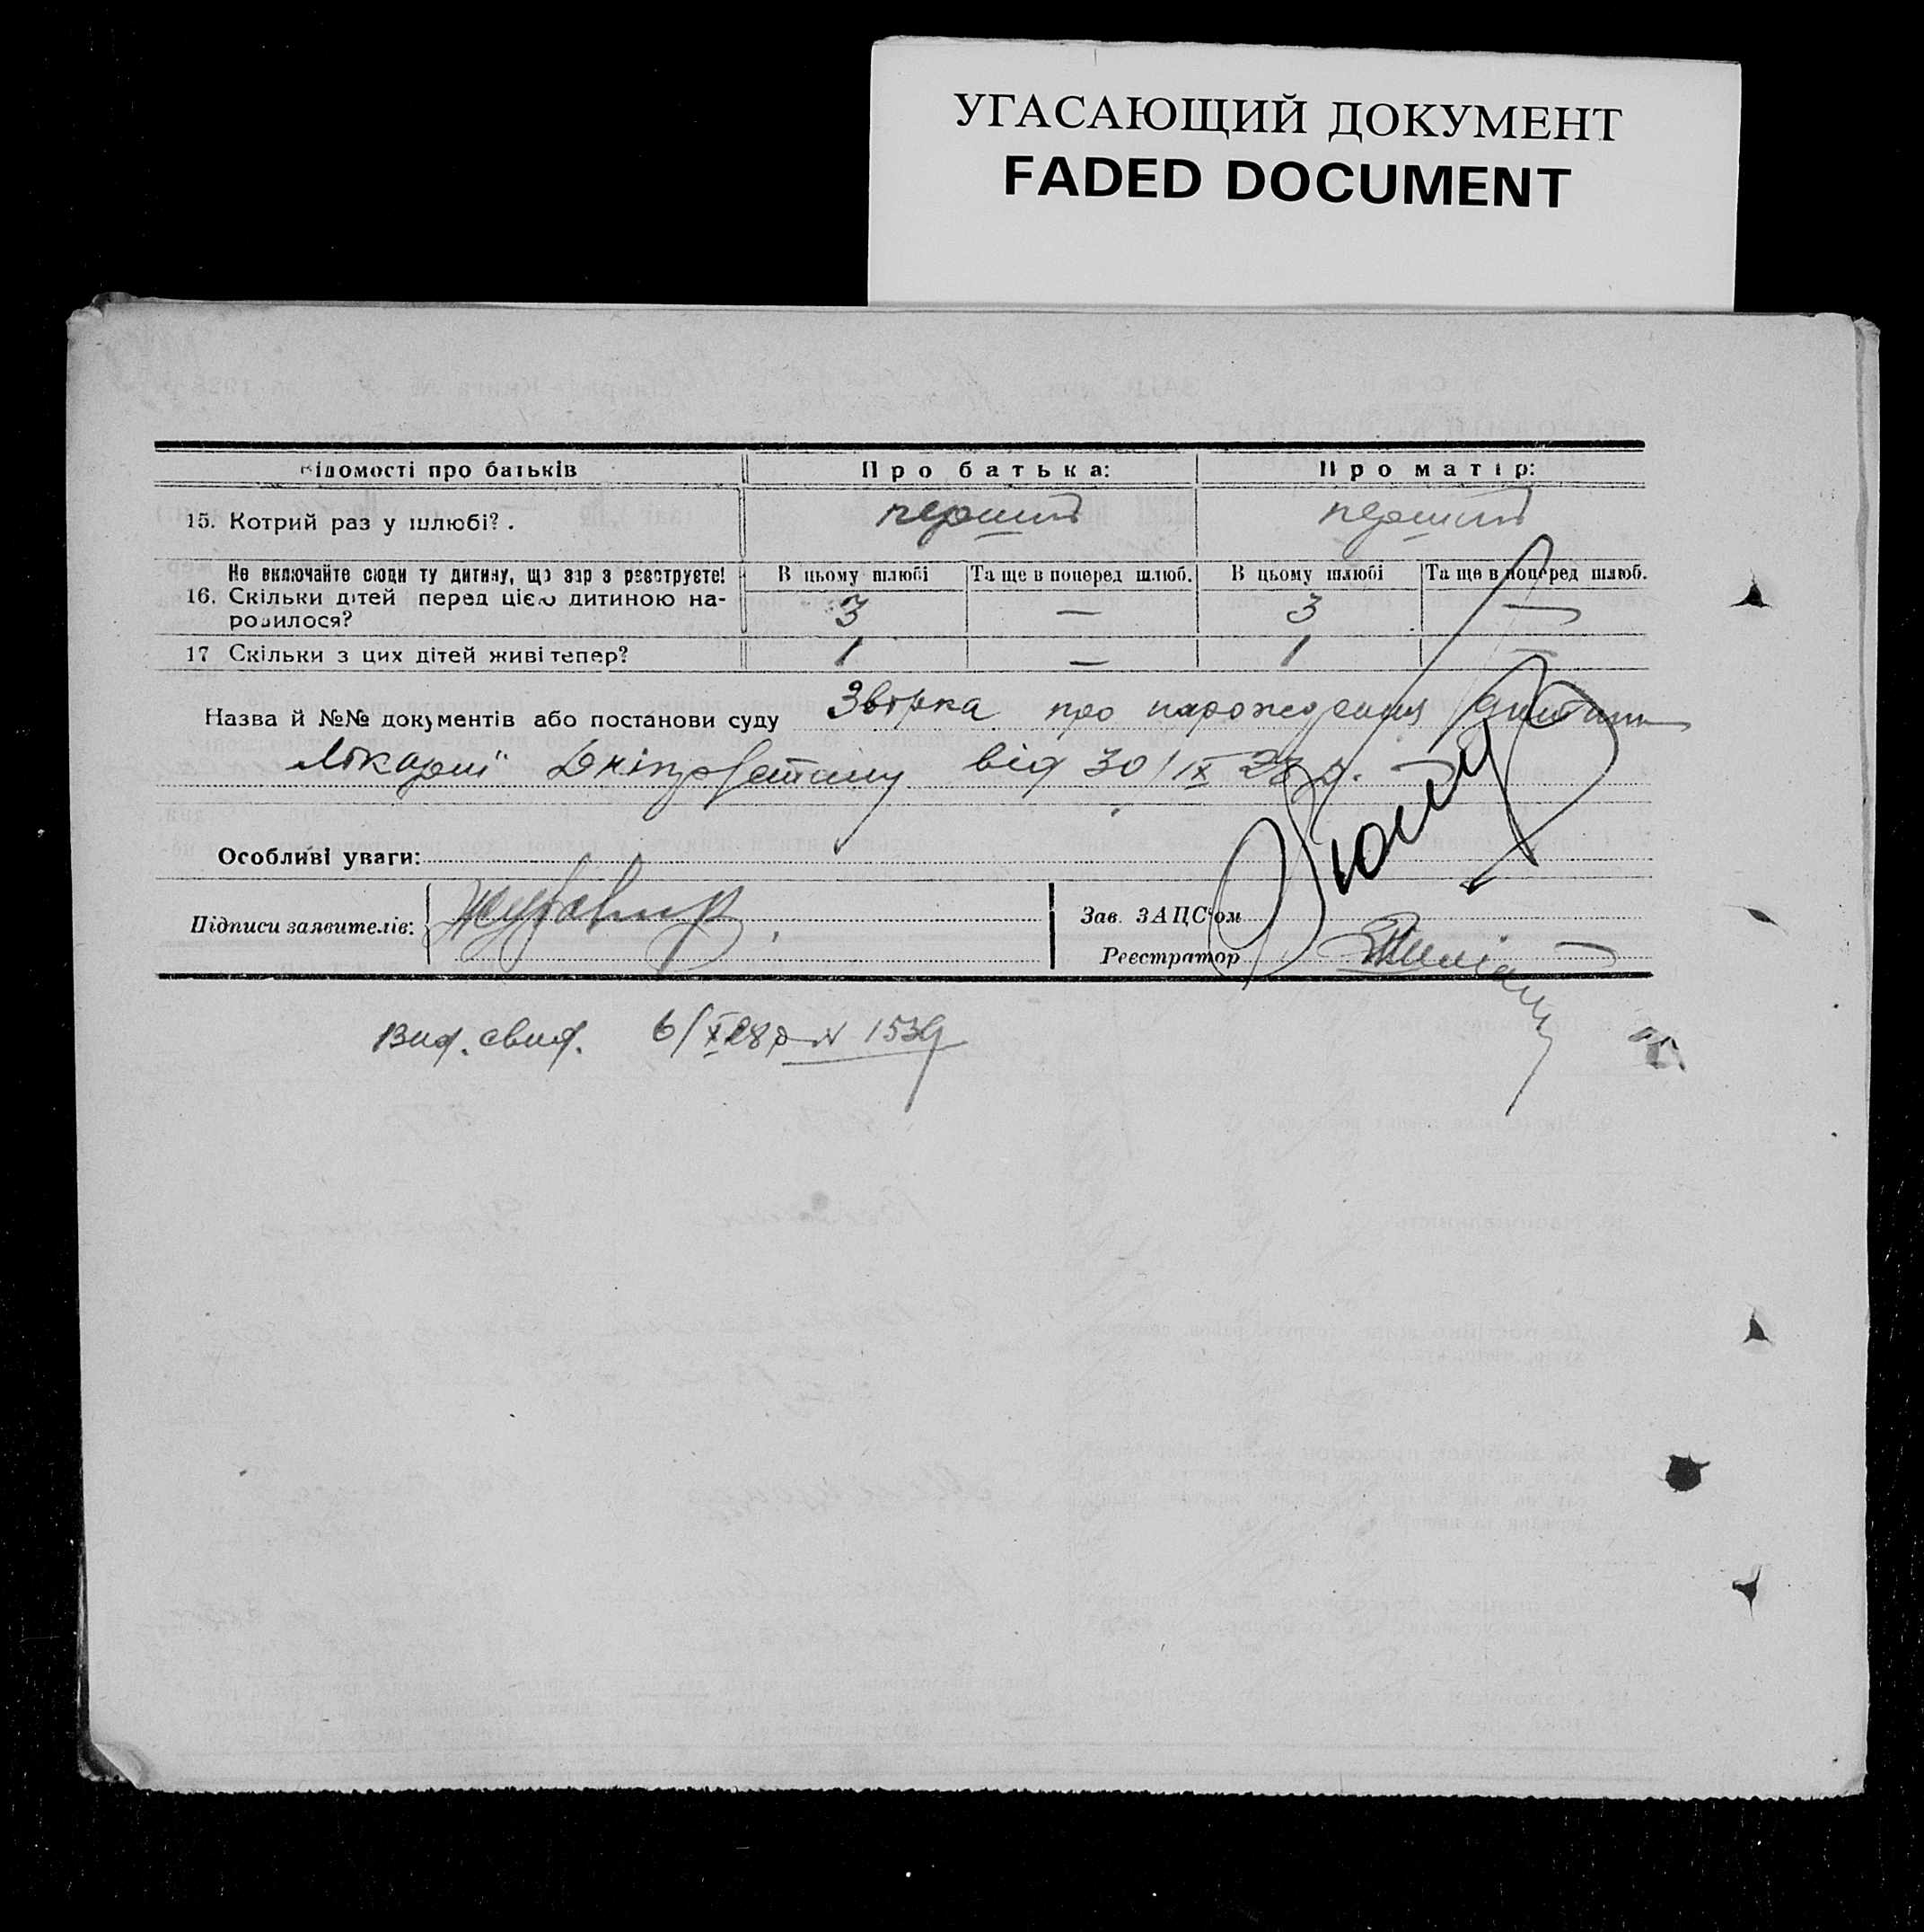 УГАСАЮЩИЙ ДОКУМЕНТ
FADED DOCUMENT
Відомості про батьків Про батька: Про матір:
15. Котрий раз у шлюбі? . перший перший
Не включайте сюди ту дитину, що зар з реєструєте! В цьому шлюбі Та ще в поперед шлюб. В цьому шлюбі Та ще в поперед шлюб.
16. Скільки дітей перед цією дитиною на-
родилося? 3 — 3 —
17 Скільки з цих дітей живі тепер? 1 — 1 —
Назва й №№ документів або постанови суду про народження дитини
Лікарні від 30/IX 28 р.
Особливі уваги:
Підписи заявителів: Зав. ЗАЦС'ом
Реєстратор
Вид. свид. 6/X 28 р N 1539